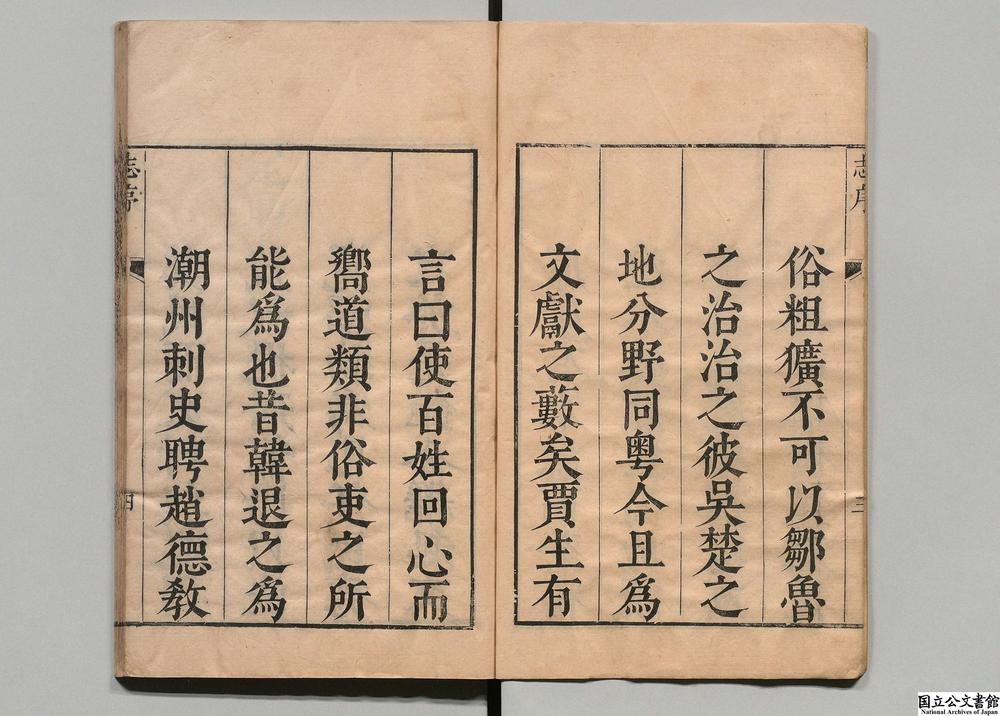 志序
三
俗粗獷不可以鄒魯
之治治之彼吳楚之
地分野同粵今且爲
文獻之藪矣賈生有
言曰使百姓回心而
嚮道類非俗吏之所
能爲也昔韓退之爲
潮州刺史聘趙德教
志序
四
国立公文書館
National Archives of Japan